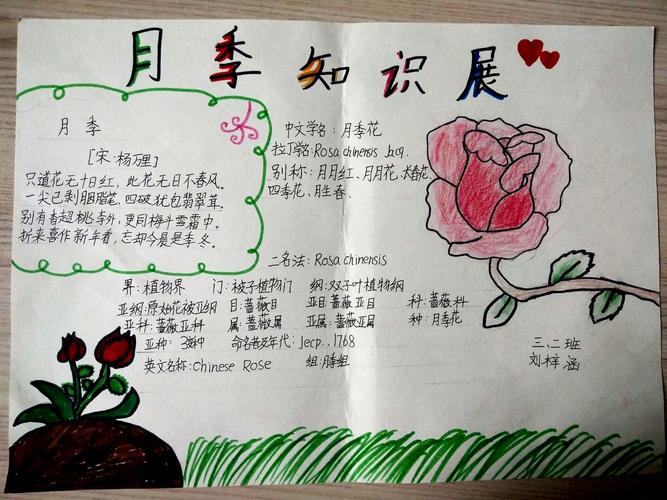 月季知识展
月季
[宋·杨万里]
只道花无十日红，此花无日不春风。
一尖已剥胭脂笔，四破犹包翡翠茸。
别有香超桃李外，更同梅斗雪霜中。
折来喜作新年看，忘却今晨是季冬。
中文学名：月季花
拉丁学名：Rosa chinensis Jacq.
别称：月月红、月月花、长春花、
四季花、月生春.
二名法：Rosa chinensis
界：植物界 门：被子植物门 纲：双子叶植物纲
亚纲：原始花被亚纲 目：蔷薇目 亚目：蔷薇亚目 科：蔷薇科
亚科：蔷薇亚科 属：蔷薇属 亚属：蔷薇亚属 种：月季花
亚种：3类种 命名者及年代：Jecp..1768
英文名称：Chinese Rose 组：月季组
三、二班
刘梓涵